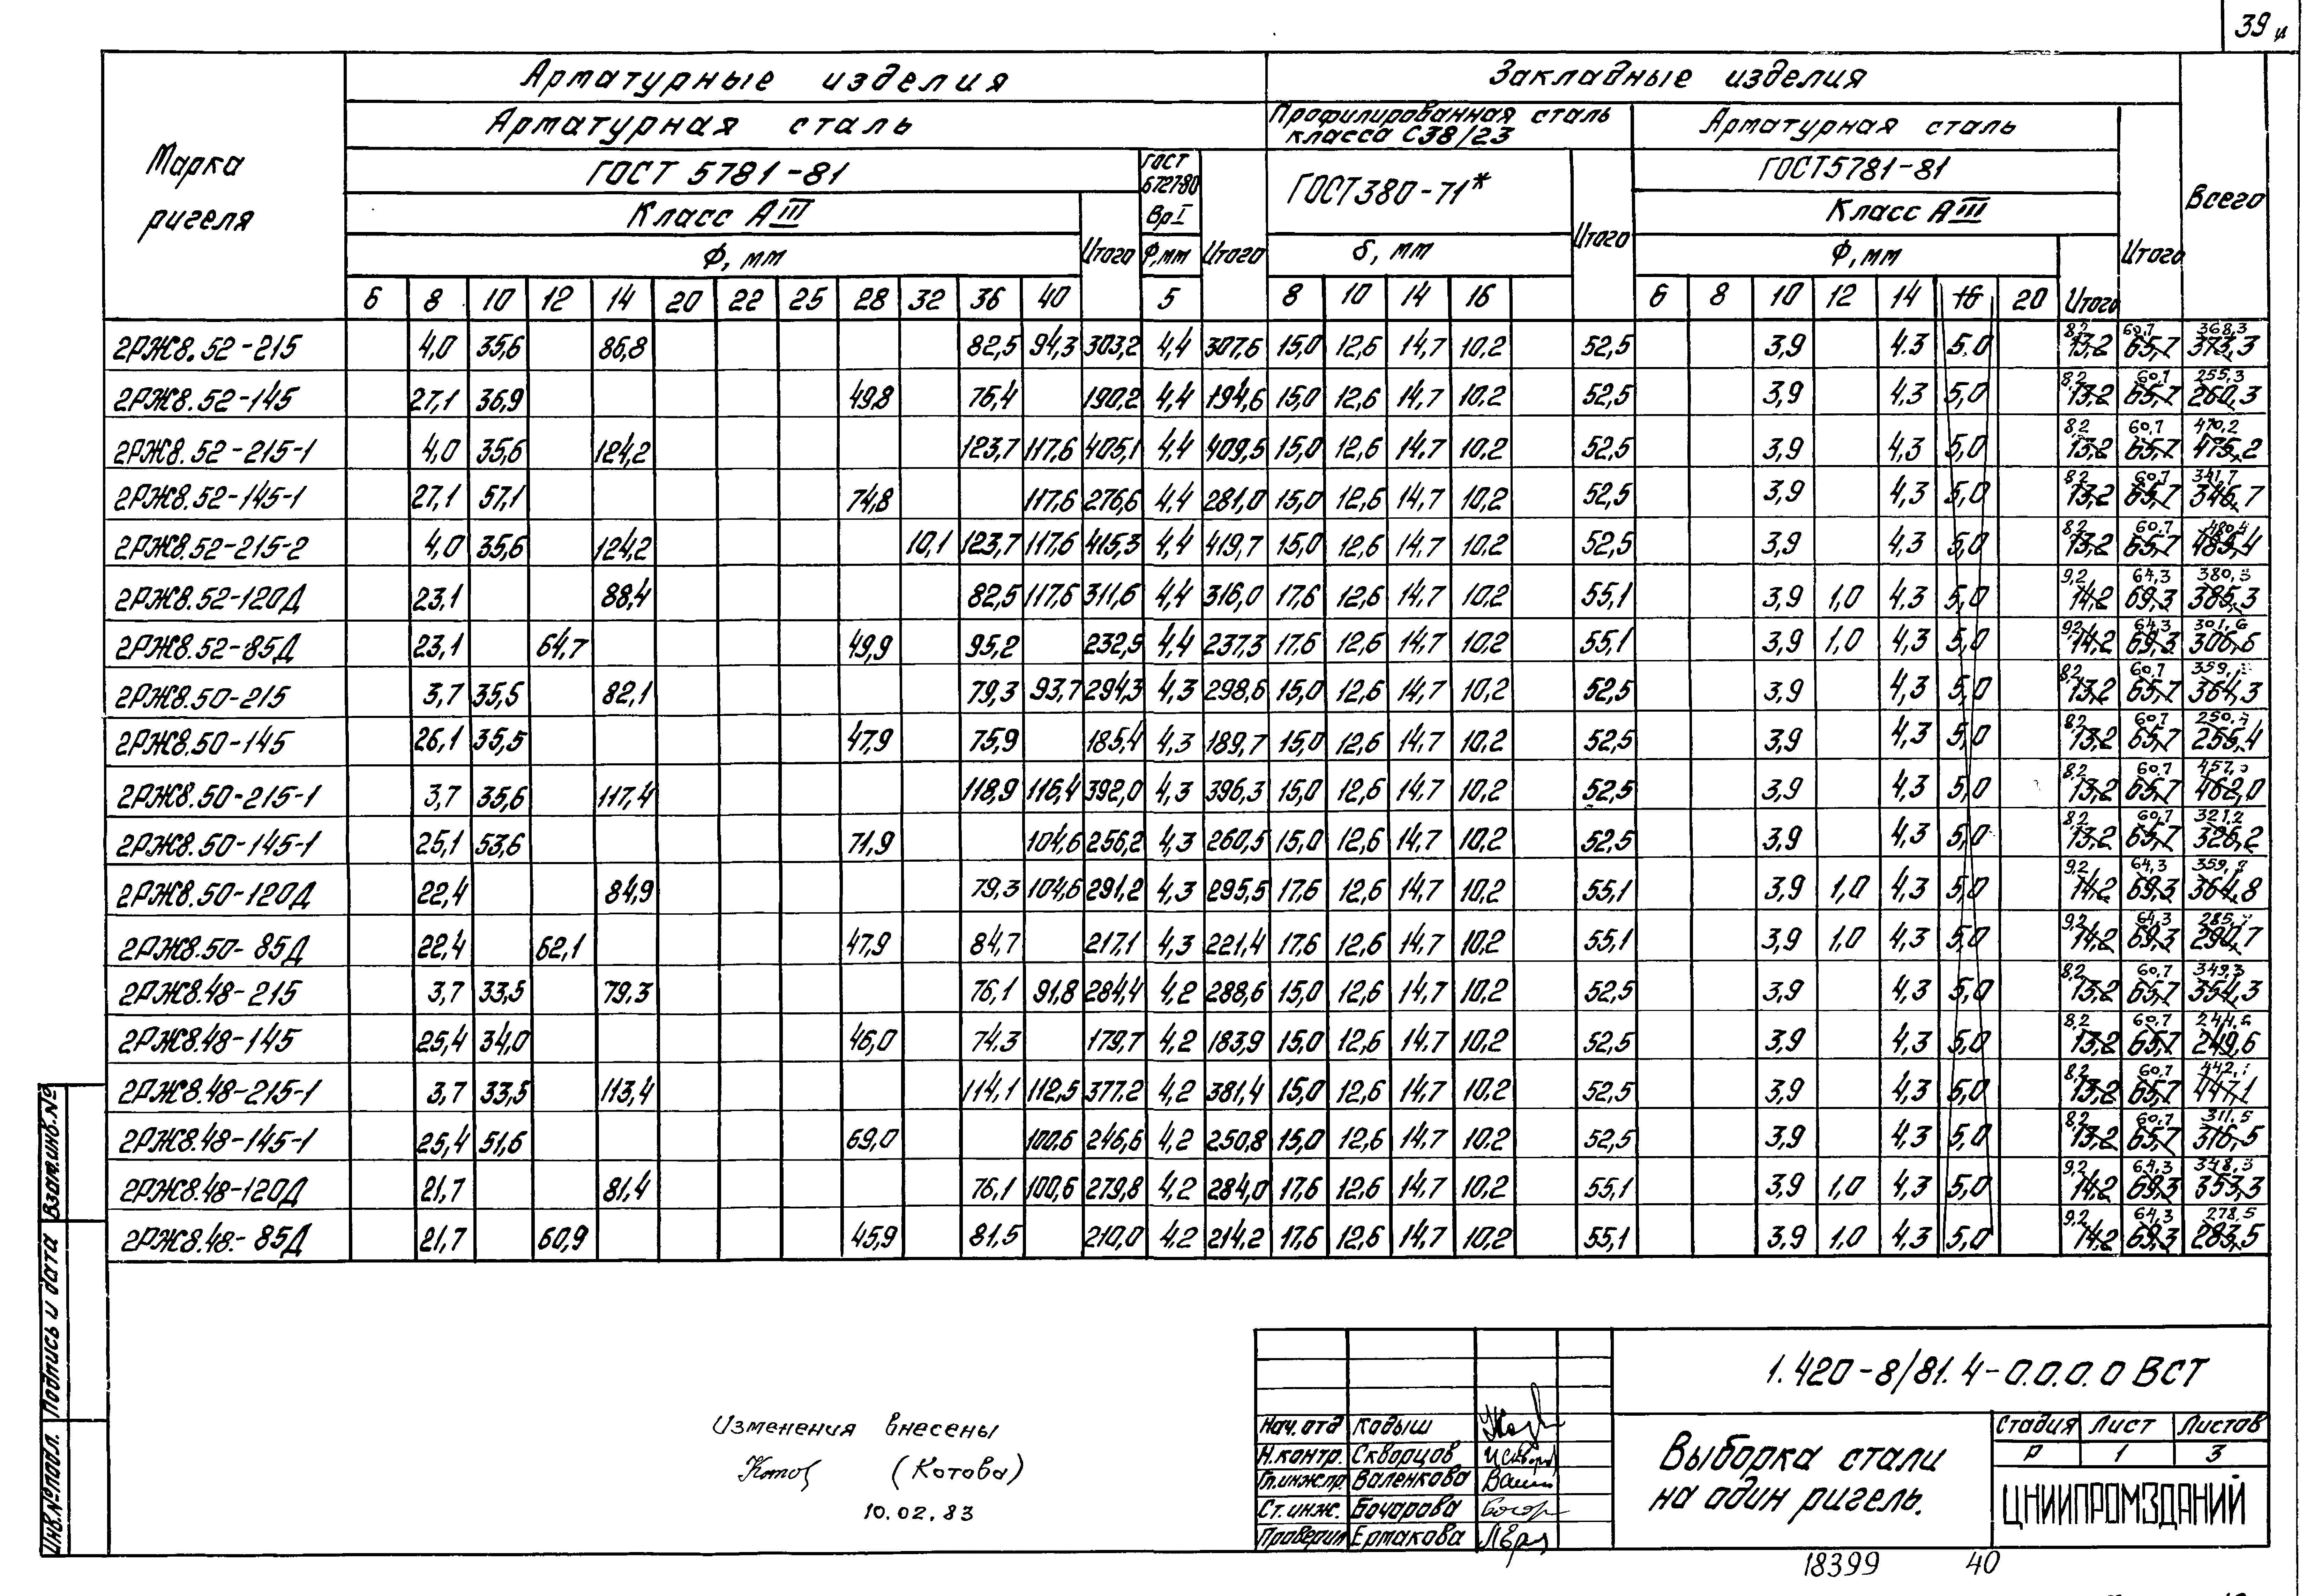 39
Арматурные изделия Закладные изделия
Арматурная сталь Профилированная сталь класса С38/23 Арматурная сталь
Марка ригеля ГОСТ 5781-81 ГОСТ 6727-80 ГОСТ 380-71* ГОСТ 5781-81 Всего
Класс АIII Вр I Класс АIII
Ф, мм Итого Ф,мм Итого δ, мм Итого Ф,мм Итого Итого
6 8 10 12 14 20 22 25 28 32 36 40 5 8 10 14 16 6 8 10 12 14 16 20
2РЖ8.52-215 4,0 35,6 86,8 82,5 94,3 303,2 4,4 307,6 15,0 12,6 14,7 10,2 52,5 3,9 4.3 5,0 8,2 13,2 60,7 65,7 368,3 373,3
2РЖ8.52-145 27,1 36,9 49,8 76,4 190,2 4,4 194,6 15,0 12,6 14,7 10,2 52,5 3,9 4,3 5,0 8,2 13,2 60,7 65,7 255,3 260,3
2РЖ8.52-215-1 4,0 35,6 124,2 123,7 117,6 405,1 4,4 409,5 15,0 12,6 14,7 10,2 52,5 3,9 4,3 5,0 8,2 13,2 60,7 65,7 470,2 475,2
2РЖ8.52-145-1 27,1 57,1 74,8 117,6 276,6 4,4 281,0 15,0 12,6 14,7 10,2 52,5 3,9 4,3 5,0 8,2 13,2 60,7 65,7 341,7 346,7
2РЖ8.52-215-2 4,0 35,6 124,2 10,1 123,7 117,6 415,3 4,4 419,7 15,0 12,6 14,7 10,2 52,5 3,9 4,3 5,0 8,2 13,2 60,7 65,7 480,4 485,4
2РЖ8.52-120Д 23,1 88,4 82,5 117,6 311,6 4,4 316,0 17,6 12,6 14,7 10,2 55,1 3,9 1,0 4,3 5,0 9,2 14,2 64,3 69,3 380,3 385,3
2РЖ8.52-85Д 23,1 64,7 49,9 95,2 232,9 4,4 237,3 17,6 12,6 14,7 10,2 55,1 3,9 1,0 4,3 5,0 9,2 14,2 64,3 69,3 301,6 306,6
2РЖ8.50-215 3,7 35,5 82,1 79,3 93,7 294,3 4,3 298,6 15,0 12,6 14,7 10,2 52,5 3,9 4,3 5,0 8,2 13,2 60,7 65,7 364,3
2РЖ8.50-145 26,1 35,5 47,9 75,9 185,4 4,3 189,7 15,0 12,6 14,7 10,2 52,5 3,9 4,3 5,0 8,2 13,2 60,7 65,7 250,4 255,4
2РЖ8.50-215-1 3,7 35,6 117,4 118,9 116,4 392,0 4,3 396,3 15,0 12,6 14,7 10,2 52,5 3,9 4,3 5,0 8,2 13,2 60,7 65,7 457,0 462,0
2РЖ8.50-145-1 25,1 53,6 71,9 104,6 256,2 4,3 260,5 15,0 12,6 14,7 10,2 52,5 3,9 4,3 5,0 8,2 13,2 60,7 65,7 321,2 326,2
2РЖ8.50-120Д 22,4 84,9 79,3 104,6 291,2 4,3 295,5 17,6 12,6 14,7 10,2 55,1 3,9 1,0 4,3 5,0 9,2 14,2 64,3 69,3 359,8 364,8
2РЖ8.50-85Д 22,4 62,1 47,9 84,7 217,1 4,3 221,4 17,6 12,6 14,7 10,2 55,1 3,9 1,0 4,3 5,0 9,2 14,2 64,3 69,3 285,7 290,7
2РЖ8.48-215 3,7 33,5 79,3 76,1 91,8 284,4 4,2 288,6 15,0 12,6 14,7 10,2 52,5 3,9 4,3 5,0 8,2 13,2 60,7 65,7 349,3 354,3
2РЖ8.48-145 25,4 34,0 46,0 74,3 179,7 4,2 183,9 15,0 12,6 14,7 10,2 52,5 3,9 4,3 5,0 8,2 13,2 60,7 65,7 244,6 249,6
2РЖ8.48-215-1 3,7 33,5 113,4 114,1 112,5 377,2 4,2 381,4 15,0 12,6 14,7 10,2 52,5 3,9 4,3 5,0 8,2 13,2 60,7 65,7 442,1 447,1
2РЖ8.48-145-1 25,4 51,6 69,0 100,6 246,6 4,2 250,8 15,0 12,6 14,7 10,2 52,5 3,9 4,3 5,0 8,2 13,2 60,7 65,7 311,5 316,5
2РЖ8.48-120Д 21,7 81,4 76,1 100,6 279,8 4,2 284,0 17,6 12,6 14,7 10,2 55,1 3,9 1,0 4,3 5,0 9,2 14,2 64,3 69,3 348,3 353,3
2РЖ8.48-85Д 21,7 60,9 45,9 81,5 210,0 4,2 214,2 17,6 12,6 14,7 10,2 55,1 3,9 1,0 4,3 5,0 9,2 14,2 64,3 69,3 278,5 283,5
Взам.инв.№
Подпись и дата
Инв.№подл.
Изменения внесены
(Котова)
10.02.83
1.420-8/81.4-0.0.0.0 ВСТ
Нач.отд Кодыш
Н.контр. Скворцов
Гл.инж.пр. Валенкова
Ст.инж. Бочарова
Проверил Ермакова
Выборка стали
на один ригель.
Стадия Лист Листов
Р 1 3
ЦНИИПРОМЗДАНИЙ
18399 40